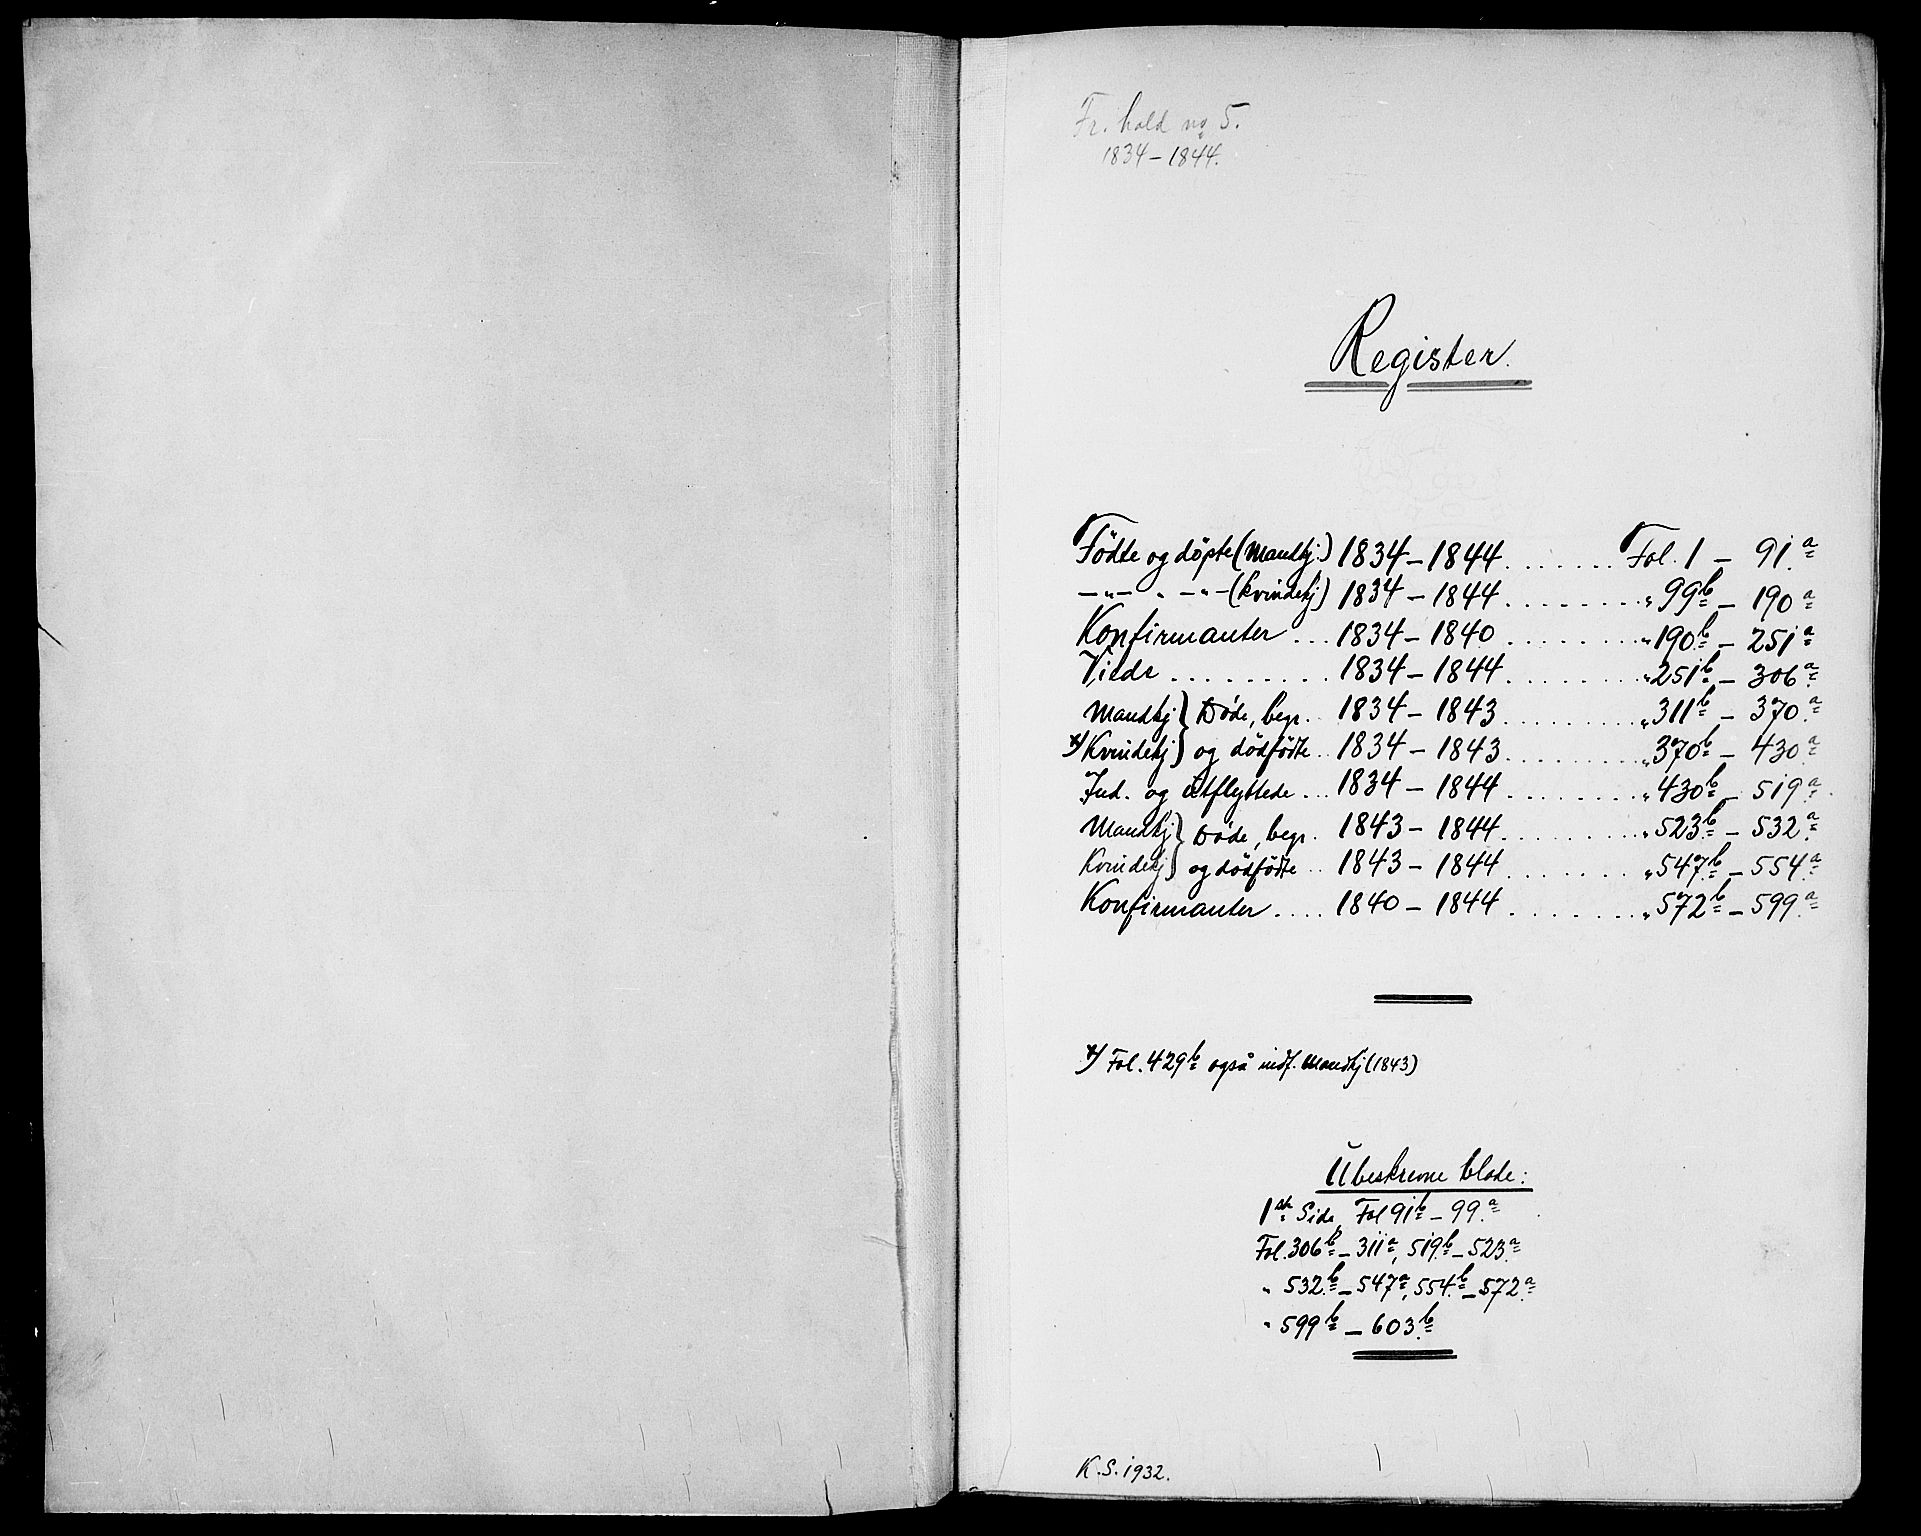 Fr. hald no 5.
1834 – 1844.
Register.
Födte og döpte (Mandkj.) 1834 – 1844 . . . . . . . Fol. 1 – 91.a
– " – " – " – (kvindekj) 1834 – 1844 . . . . . . . " 99b – 190a
Konfirmanter . . . 1834 – 1840 . . . . . . . " 190b – 251a
Viede . . . . . . . . . 1834 – 1844 . . . . . . . " 251b – 306a
Mandkj } Döde, begr. . 1834 – 1843 . . . . . . . " 311b – 370.a
x) Kvindekj } og dödfödte . . 1834 – 1843 . . . . . . . " 370b – 430a
Ind. og utflyttede . . . 1834 – 1844 . . . . . . . " 430b – 519a
Mandkj } Döde, begr. 1843 – 1844 . . . . . . . " 523b – 532a
Kvindekj } og dödfödte . . 1843 – 1844 . . . . . . . " 547b – 554a
Konfirmanter . . . . 1840 – 1844 . . . . . . . " 572b – 599.a
x) Fol. 429b også indf. Mandkj (1843)
Ubeskrevne blade:
1ste Side, Fol 91b – 99.a
Fol. 306b – 311a, 519.b – 523a
" 532b – 547a, 554.b – 572a
" 599b – 603b
K. S. 1932.